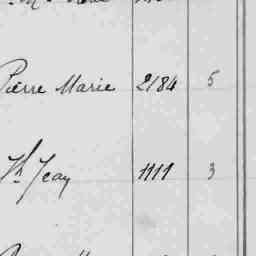 Pierre Marie 2184 5
Jh Jean 1111 3